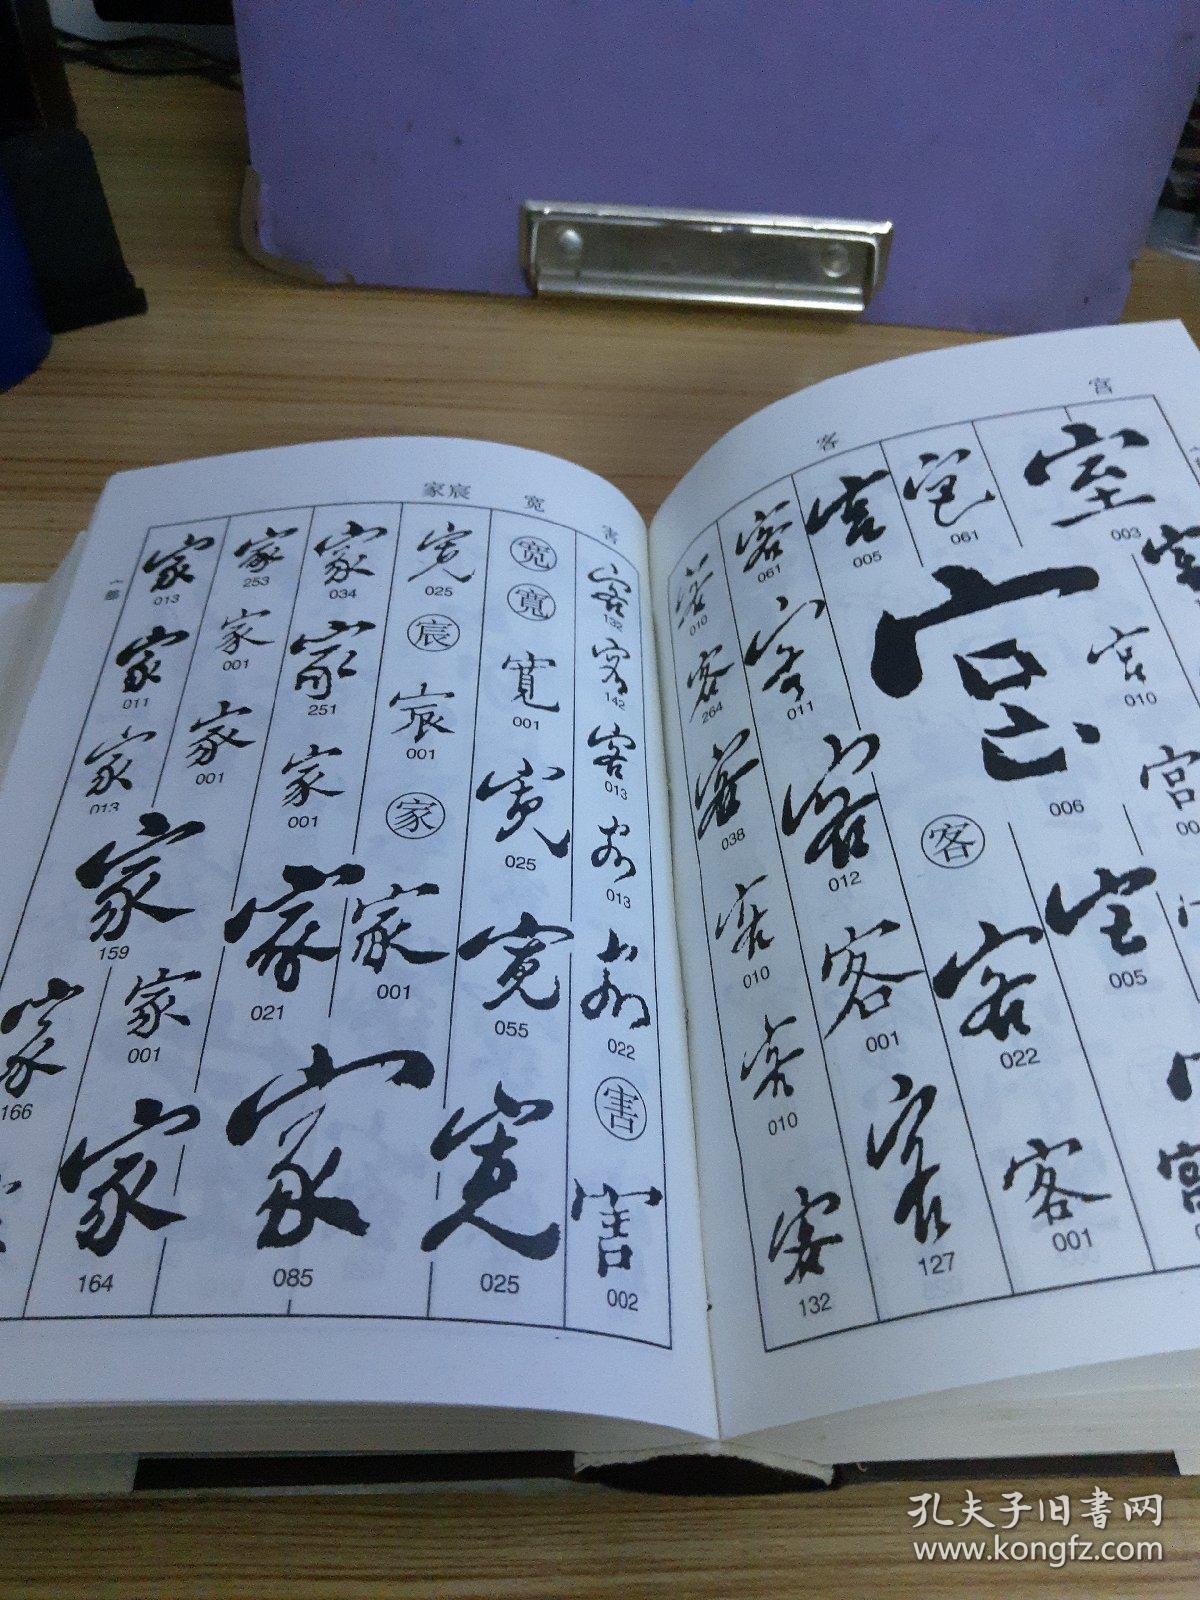 宫
客
室
003
宫
061
宫
005
宫
006
宫
010
宫
宫
005
㊀客
客
022
客
001
客
011
客
012
客
001
客
127
客
061
客
264
客
038
客
010
客
010
客
132
客
010
家宸 宽 害
客
132
客
142
客
013
客
013
客
022
害
害
002
宽
寬
寬
001
宽
025
宽
055
宽
025
宽
025
宸
宸
001
家
家
001
家
085
家
034
家
251
家
001
家
021
家
253
家
001
家
001
家
001
家
164
家
013
家
011
家
013
家
159
家
166
孔夫子旧书网
www.kongfz.com